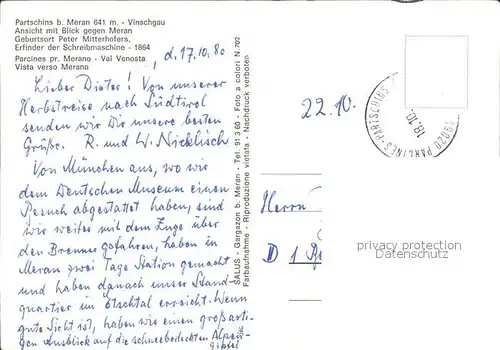 Partschins b. Meran 641 m. - Vinschgau
Ansicht mit Blick gegen Meran
Geburtsort Peter Mitterhofers,
Erfinder der Schreibmaschine - 1864
Parcines pr. Merano - Val Venosta
Vista verso Merano
, d. 17.10.80
Lieber Dieter! Von unserer
Herbstreise nach Südtirol
senden wir Dir unsere besten
Grüße. R. und W. Nicklisch
Von München aus, wo wir
dem Deutschen Museum einen
Besuch abgestattet haben, sind
wir weiter mit dem Zuge über
den Brenner gefahren, haben in
Meran zwei Tage Station gemacht
und haben danach unser Stand-
quartier im Etschtal erreicht. Wenn
gute Sicht ist, haben wir einen großarti-
gen Ausblick auf die schneebedeckten Alpen-
gipfel
SALUS - Gargazon b. Meran - Tel. 91 3 60 - Foto a colori N. 702
Farbaufnahme - Riproduzione vietata - Nachdruck verboten
22.10.
39020 PARCINES-PARTSCHINS
18.10.
Herrn
D 1
privacy protection
Datenschutz